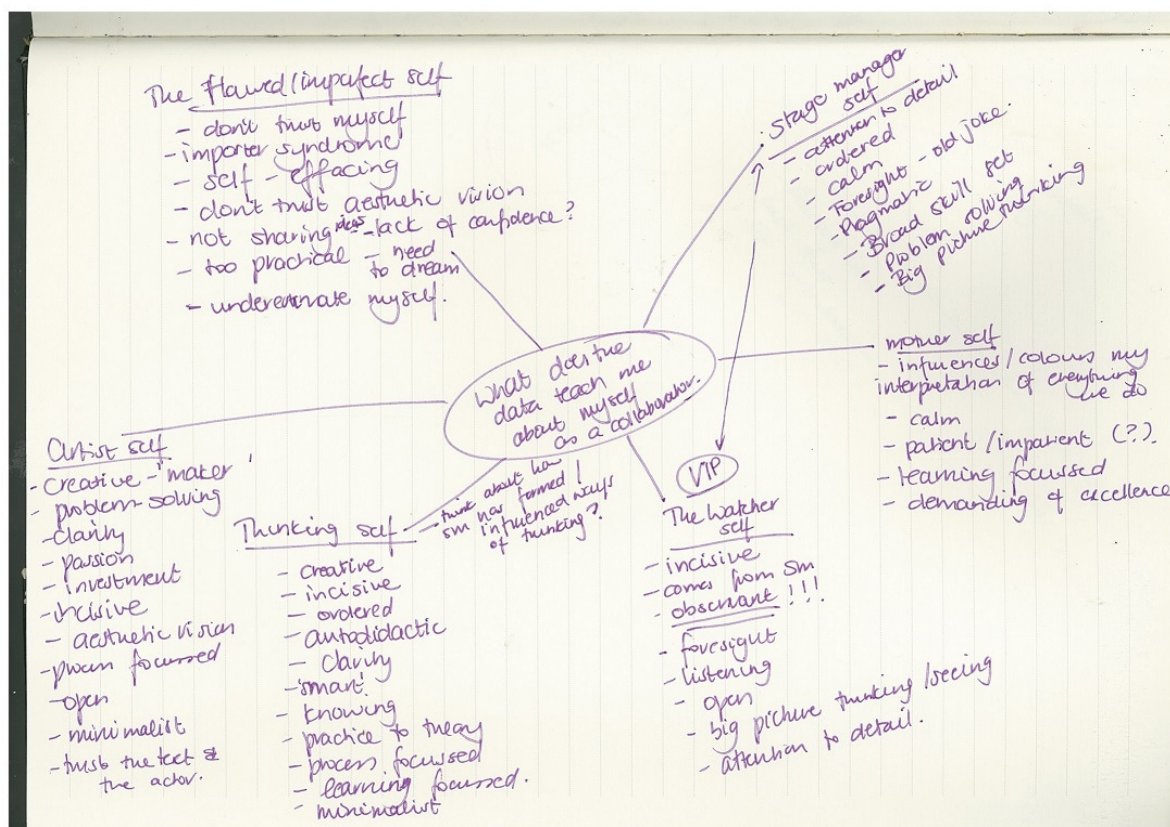 The Flawed/imperfect self
- don't trust myself
- imposter syndrome
- self-effacing
- don't trust aesthetic vision
- not sharing ideas - lack of confidence?
- too practical - need
to dream
- underestimate myself.
Stage manager
self
- attention to detail
- ordered
- calm
- Foresight - old joke.
- Pragmatic
- Broad skill set
- Problem solving
- Big picture thinking
What does the
data teach me
about myself
as a collaborator.
mother self
- influences/colours my
interpretation of everything
we do
- calm
- patient/impatient (?).
- learning focussed
- demanding of excellence
Artist self
- creative - 'maker'
- problem-solving
- clarity
- passion
- investment
- incisive
- aesthetic vision
- process focussed
- open
- minimalist
- trusts the text &
the actor.
Thinking self
- think about how
sm has formed/
influenced ways
of thinking?
- creative
- incisive
- ordered
- autodidactic
- clarity
- 'smart'
- knowing
- practice to theory
- process focussed
- learning focussed.
- minimalist
VIP
The Watcher
self
- incisive
- comes from sm
- observant!!!
- foresight
- listening
- open
- big picture thinking/seeing
- attention to detail.